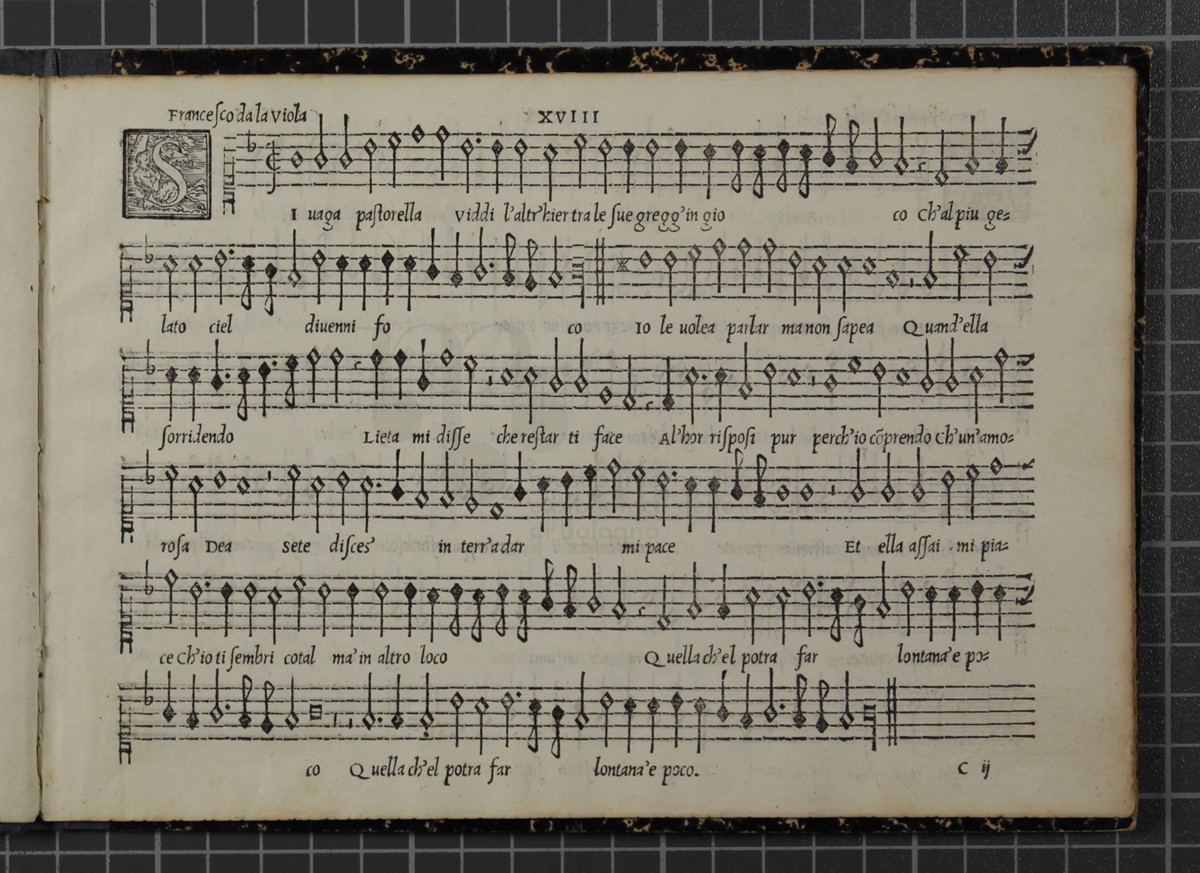 Franceſco da la viola
XVIII
S
I uaga paſtorella viddi l'altr'hier tra le ſue gregg'in gio co Ch'al piu ge=
lato ciel diuenni fo co Io le uolea parlar ma non ſapea Quand'ella
ſorridendo Lieta mi diſſe che reſtar ti face Al'hor riſpoſi pur perch'io cõprendo Ch'un'amo=
roſa Dea Sete diſces' in terr'a dar mi pace Et ella aſſai mi pia=
ce Ch'io ti ſembri cotal ma'in altro loco Quella ch'el potra far lontana'e po=
co Quella ch'el potra far lontana'e poco.
C ij